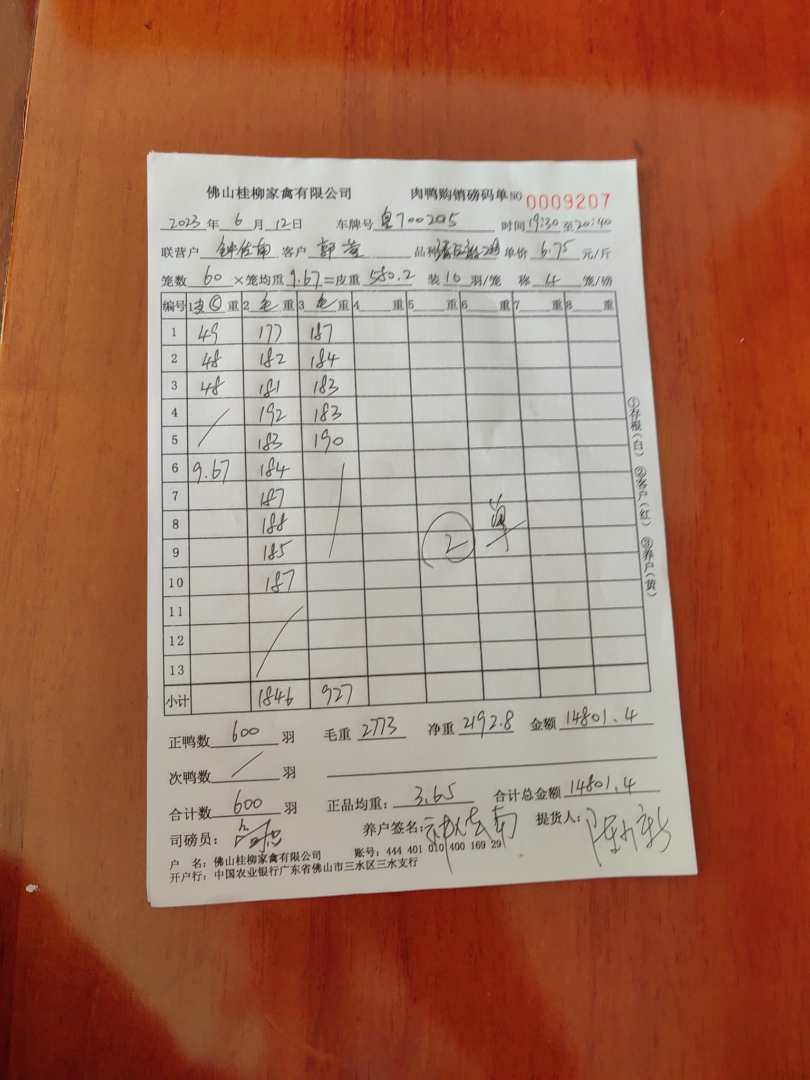 佛山桂柳家禽有限公司 肉鸭购销磅码单 NO 0009207
2023 年 6 月 12 日 车牌号 700205 时间 19:30 至 20:40
联营户 客户 郭 品种 单价 6.75 元/斤
笼数 60 ×笼均重 9.67 =皮重 580.2 装 10 羽/笼 称 4 笼/磅
编号 1 皮⑤ 重 2 毛 重 3 毛 重 4 重 5 重 6 重 7 重 8 重
1 49 177 187
2 48 182 184
3 48 181 183
4 / 192 183
5 183 190
6 9.67 184 /
7 187
8 188 ② 单
9 185
10 187
11 /
12
13
小计 1846 927
①存根(白) ②客户(红) ③养户(黄)
正鸭数 600 羽 毛重 2773 净重 2192.8 金额 14801.4
次鸭数 / 羽
合计数 600 羽 正品均重: 3.65 合计总金额 14801.4
司磅员: 养户签名: 提货人:
户 名: 佛山桂柳家禽有限公司 账号: 444 401 010 400 169 29
开户行: 中国农业银行广东省佛山市三水区三水支行